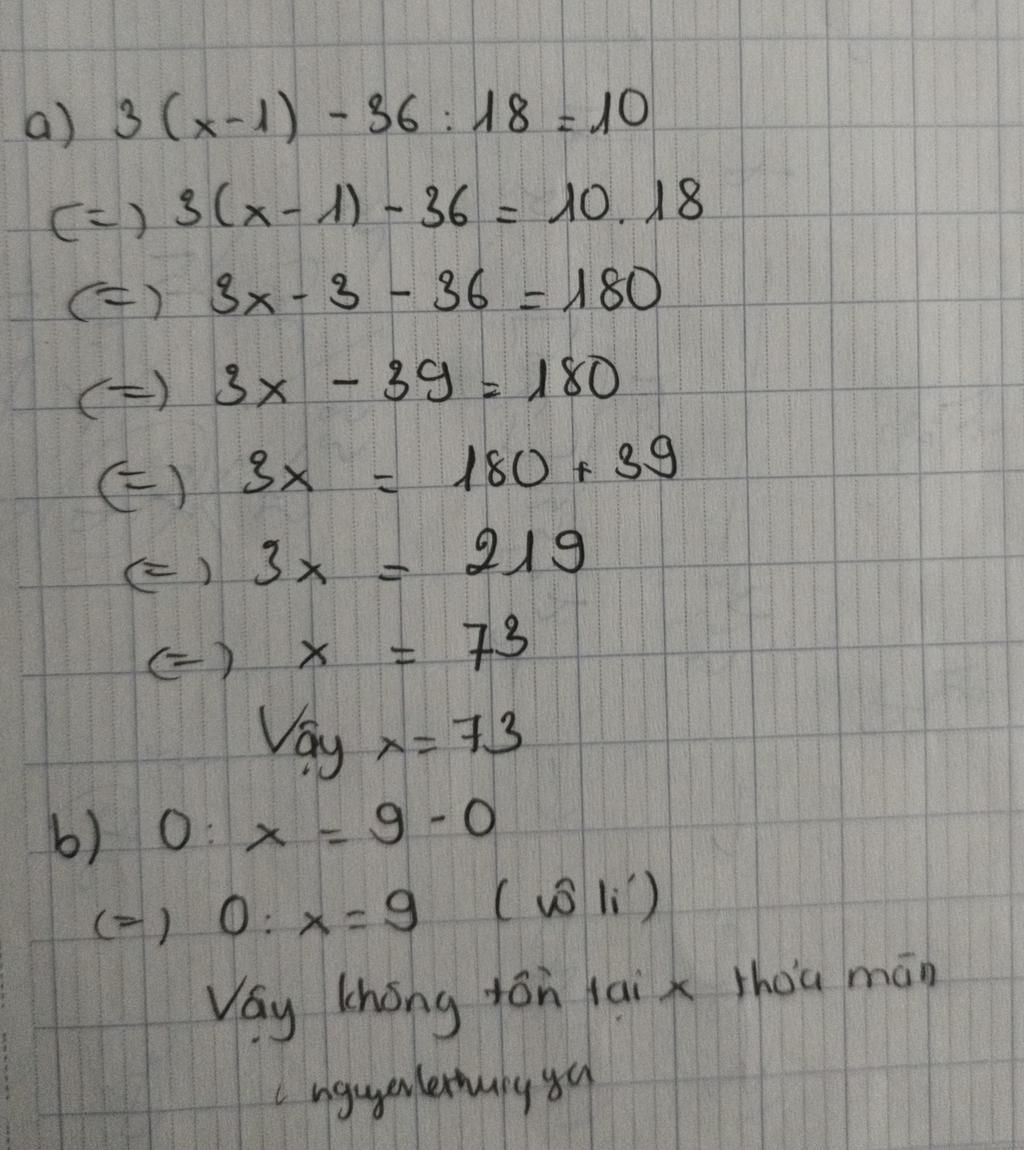 a) 3(x-1) - 36 : 18 = 10
(=) 3(x-1) - 36 = 10.18
(=) 3x - 3 - 36 = 180
(=) 3x - 39 = 180
(=) 3x = 180 + 39
(=) 3x = 219
(=) x = 73
Vậy x = 73
b) 0 : x = 9 - 0
(=) 0 : x = 9 (vô lí)
Vậy không tồn tại x thỏa mãn